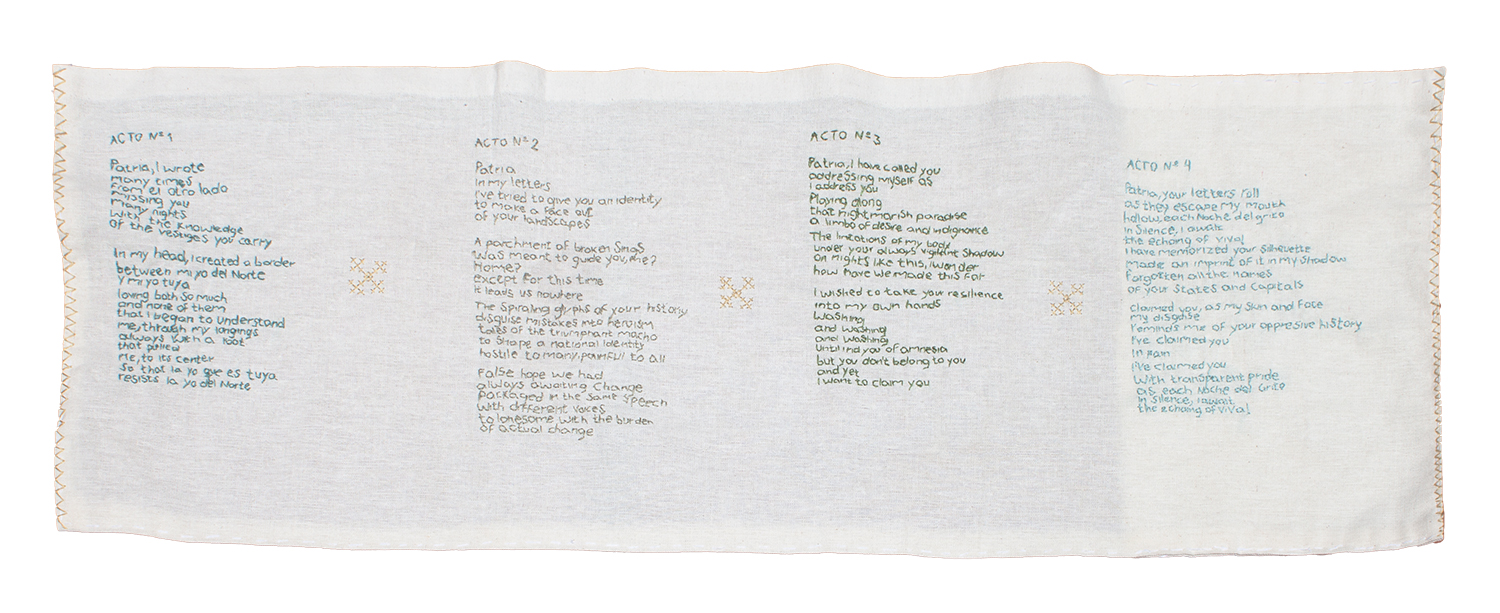 ACTO Nº 1
Patria, I wrote
many times
from el otro lado
missing you
many nights
with the knowledge
of the vestiges you carry
In my head, I created a border
between mi yo del Norte
y mi yo tuya
loving both so much
and none of them
that I began to understand
me, through my longings
always with a root
that pulled
me, to its center
so that la yo que es tuya
resists la yo del Norte
ACTO Nº 2
Patria
in my letters
I've tried to give you an identity
to make a face out
of your landscapes
A parchment of broken Smiles
was meant to guide you, me?
Home?
except for this time
it leads us nowhere
The Spiraling glyphs of your history
disguise mistakes into heroism
tales of the triumphant macho
to shape a national identity
hostile to many, painful to all
False hope we had
always awaiting change
packaged in the same speech
with different voices
to lonesome with the burden
of actual change
ACTO Nº 3
Patria, I have called you
addressing myself as
I address you
Playing along
that nightmarish paradise
a limbo of desire and indignance
The limitations of my body
under your always vigilant shadow
on nights like this, I wonder
how have we made this far
I wished to take your resilience
into my own hands
Washing
and washing
and washing
Until rid you of amnesia
but you don't belong to you
and yet
I want to claim you
ACTO Nº 4
Patria, your letters roll
as they escape my mouth
hollow, each Noche del grito
in silence, I await
the echoing of viva!
I have memorized your silhouette
made an imprint of it in my shadow
forgotten all the names
of your states and capitals
claimed you, as my sun and face
my disguise
reminds me of your oppresive history
I've claimed you
in pain
I've claimed you
with transparent pride
as each Noche del Grito
in silence, I await
the echoing of viva!